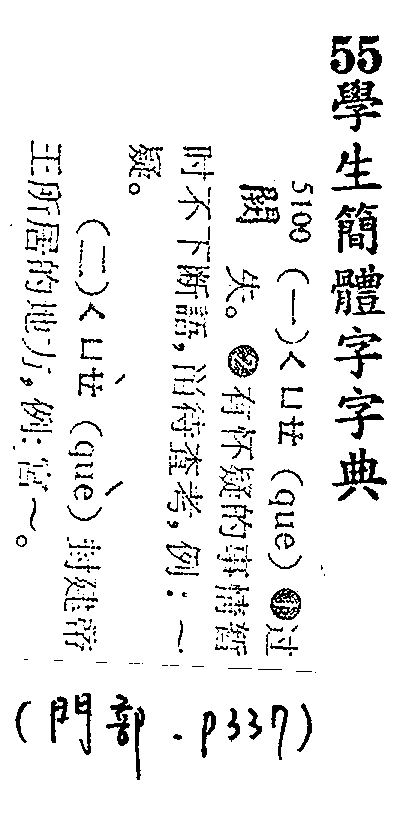 55學生簡體字字典
5100 (一)ㄑㄩㄝ (que) ❶过
闕 失。❷有怀疑的事情暂
时不下断語,留待查考,例:～
疑。
(二)ㄑㄩㄝˋ (què) 封建帝
王所居的地方,例:宫～。
(門部.P337)